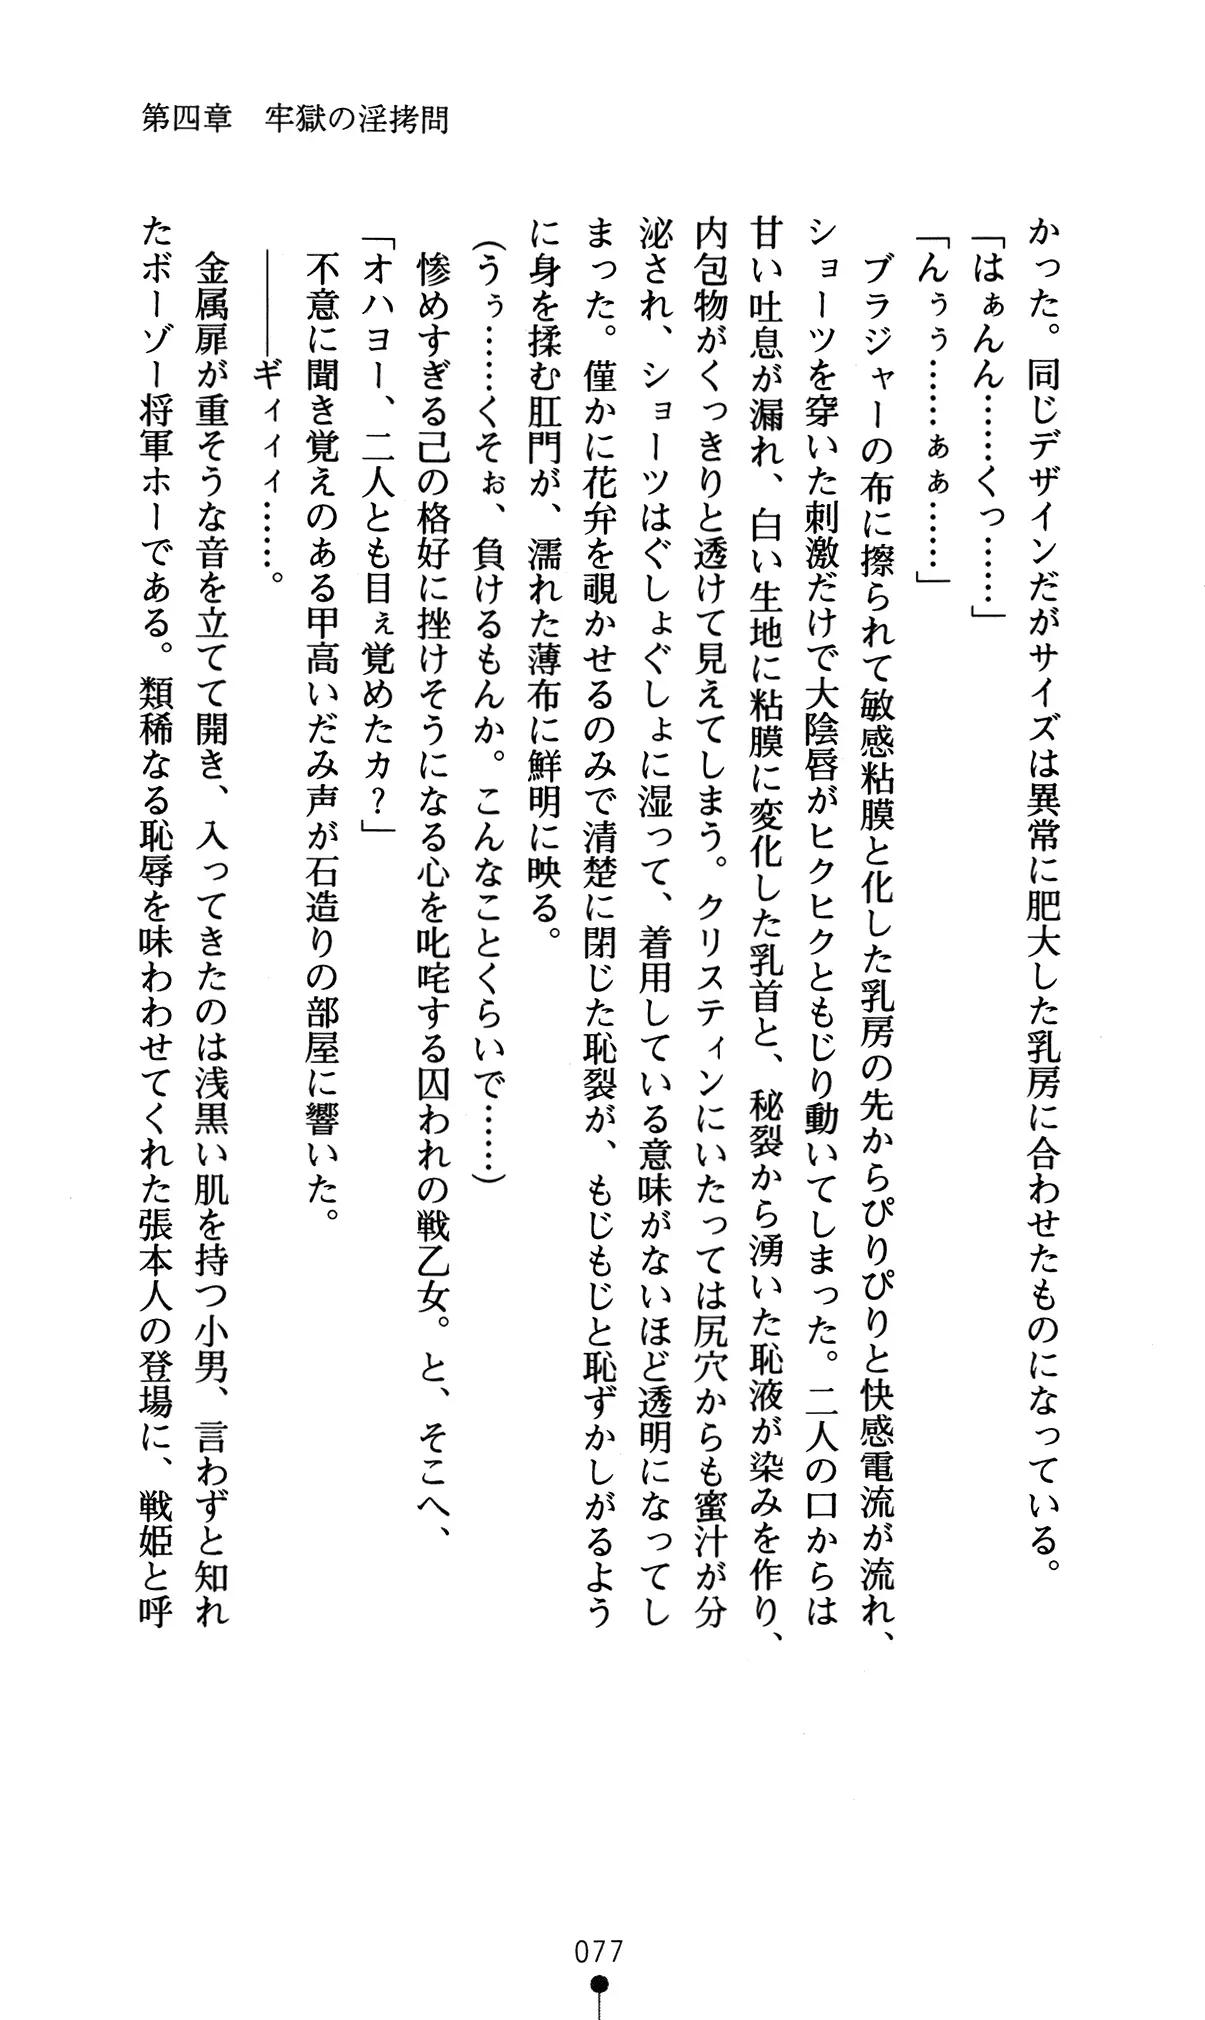 第四章　牢獄の淫拷問
かった。同じデザインだがサイズは異常に肥大した乳房に合わせたものになっている。
「はぁんん……くっ……」
「んぅぅ……ぁぁ……」
　ブラジャーの布に擦られて敏感粘膜と化した乳房の先からぴりぴりと快感電流が流れ、
ショーツを穿いた刺激だけで大陰唇がヒクヒクともじり動いてしまった。二人の口からは
甘い吐息が漏れ、白い生地に粘膜に変化した乳首と、秘裂から湧いた恥液が染みを作り、
内包物がくっきりと透けて見えてしまう。クリスティンにいたっては尻穴からも蜜汁が分
泌され、ショーツはぐしょぐしょに湿って、着用している意味がないほど透明になってし
まった。僅かに花弁を覗かせるのみで清楚に閉じた恥裂が、もじもじと恥ずかしがるよう
に身を揉む肛門が、濡れた薄布に鮮明に映る。
（うぅ……くそぉ、負けるもんか。こんなことくらいで……）
　惨めすぎる己の格好に挫けそうになる心を叱咤する囚われの戦乙女。と、そこへ、
「オハヨー、二人とも目ぇ覚めたカ？」
　不意に聞き覚えのある甲高いだみ声が石造りの部屋に響いた。
　――ギィィィ……。
　金属扉が重そうな音を立てて開き、入ってきたのは浅黒い肌を持つ小男、言わずと知れ
たボーゾー将軍ホーである。類稀なる恥辱を味わわせてくれた張本人の登場に、戦姫と呼
077